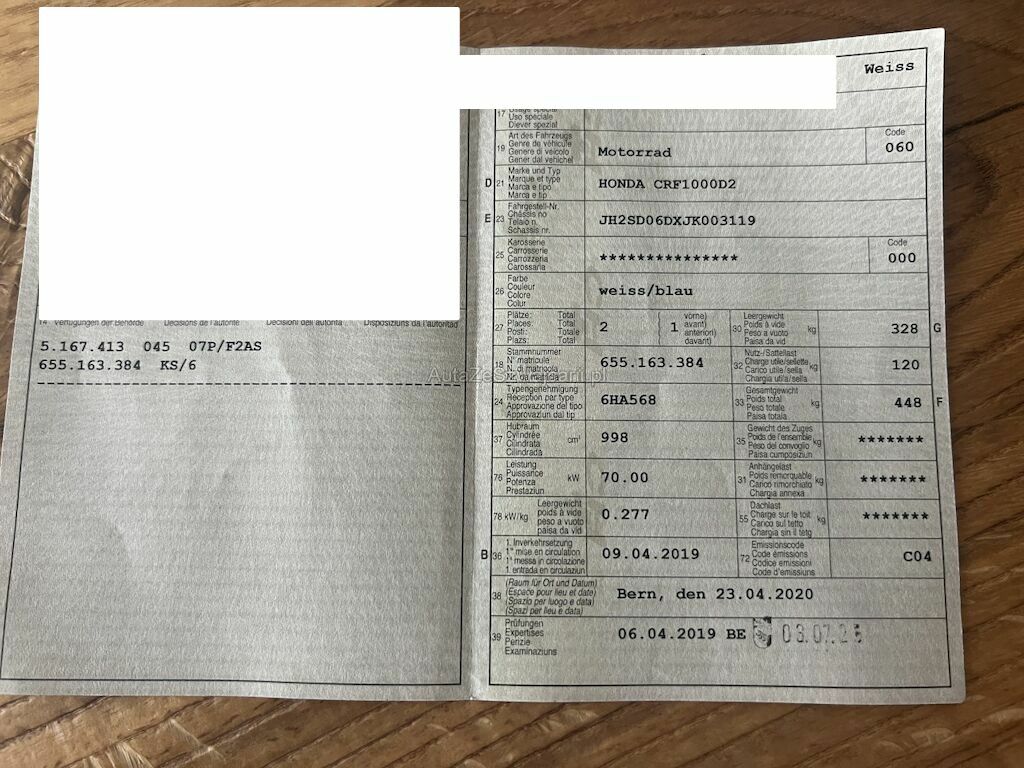 14 Verfügungen der Behörde Décisions de l'autorité Decisioni dell'autorità Disposiziuns da l'autoritad
5.167.413 045 07P/F2AS
655.163.384 KS/6
Weiss
17
Uso speciale
Diever spezial
19 Art des Fahrzeugs
Genre de véhicule
Genere di veicolo
Gener dal vehichel
Motorrad
Code
060
D 21 Marke und Typ
Marque et type
Marca e tipo
Marca e tip
HONDA CRF1000D2
E 23 Fahrgestell-Nr.
Châssis no
Telaio n.
Schassis nr.
JH2SD06DXJK003119
25 Karosserie
Carrosserie
Carrozzeria
Carossaria
***************
Code
000
26 Farbe
Couleur
Colore
Colur
weiss/blau
27 Plätze: Total
Places: Total
Posti: Totale
Plazs: Total
2 ( 1 vorne)
avant)
anteriori)
davant)
30 Leergewicht
Poids à vide
Peso a vuoto
Paisa da vid
kg
328 G
18 Stammnummer
N° matricule
N. di matricola
655.163.384
32 Nutz-/Sattellast
Charge utile/sellette
Carico utile/sella
Chargia utila/sella
kg
120
24 Typengenehmigung
Réception par type
Approvazione del tipo
Approvaziun dal tip
6HA568
33 Gesamtgewicht
Poids total
Peso totale
Paisa totala
kg
448 F
37 Hubraum
Cylindrée
Cilindrata
Cilindrada
cm³
998
35 Gewicht des Zuges
Poids de l'ensemble
Peso del convoglio
Paisa cumposiziun
kg
*******
76 Leistung
Puissance
Potenza
Prestaziun
kW
70.00
31 Anhängelast
Poids remorquable
Carico rimorchiato
Chargia annexa
kg
*******
78 kW/kg Leergewicht
poids à vide
peso a vuoto
paisa da vid
0.277
55 Dachlast
Charge sur le toit
Carico sul tetto
Chargia sin il tetg
kg
*******
B 36 1. Inverkehrsetzung
1re mise en circulation
1a messa in circolazione
1. entrada en circulaziun
09.04.2019
72 Emissionscode
Code émissions
Codice emissioni
Code d'emissiuns
C04
38 (Raum für Ort und Datum)
(Espace pour lieu et date)
(Spazio per luogo e data)
(Spazi per lieu e data)
Bern, den 23.04.2020
39 Prüfungen
Expertises
Perizie
Examinaziuns
06.04.2019 BE